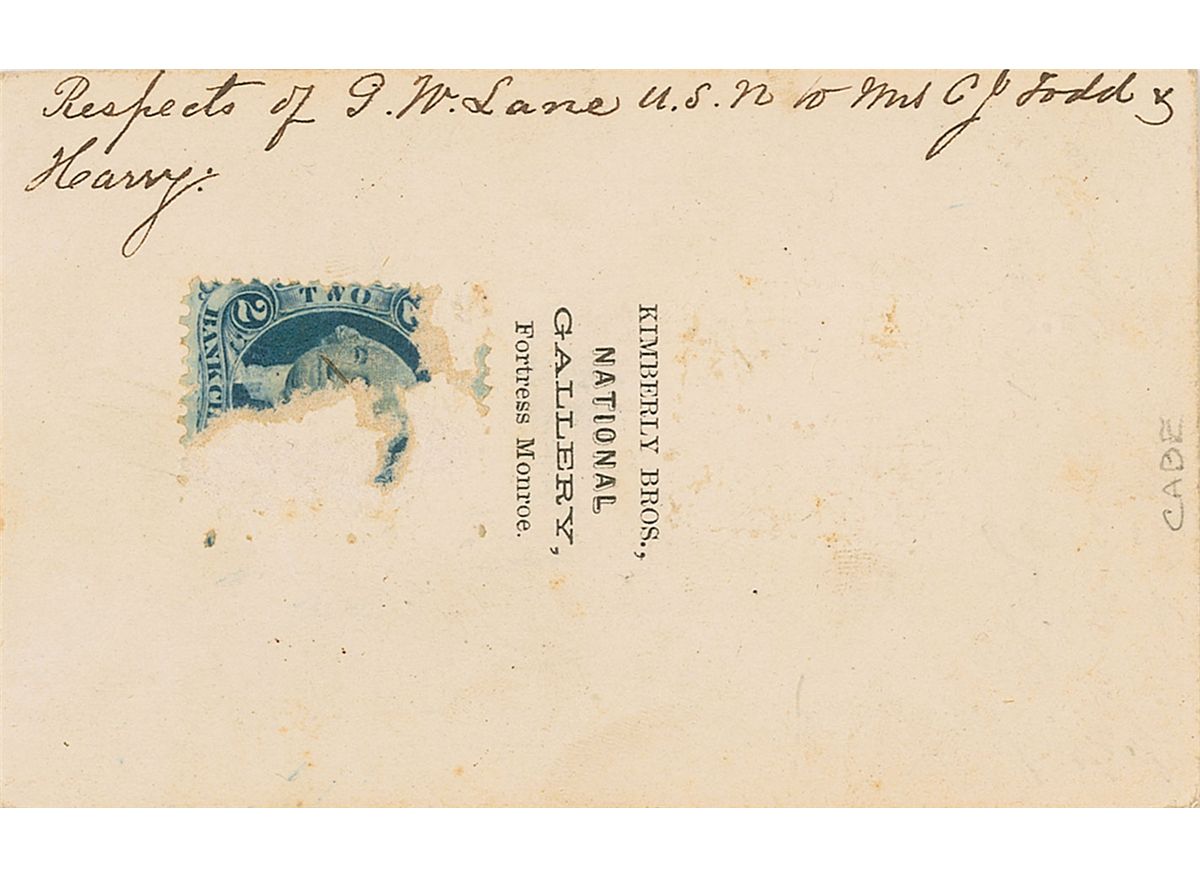 Respects of G. W. Lane U.S.N to Mrs C J Todd &
Harry.
KIMBERLY BROS.,
NATIONAL
GALLERY,
Fortress Monroe.
2 TWO 2
BANK CH
CADE